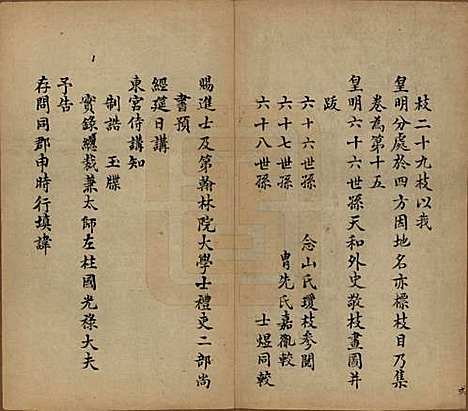 枝二十九枝以我
皇明分處於四方因地名亦標枝目乃集
卷為第十五
皇明六十六世孫天和外史敬枝畫圖并
跋
六十六世孫　念山氏瓊枝參閱
六十七世孫　胄先氏嘉徵較
六十八世孫　士煜同較
賜進士及第翰林院大學士禮吏二部尚
書預
經筵日講
東宮侍講知
制誥　玉牒
實錄總裁兼太師左柱國光祿大夫
予告
存問同郡申時行填諱